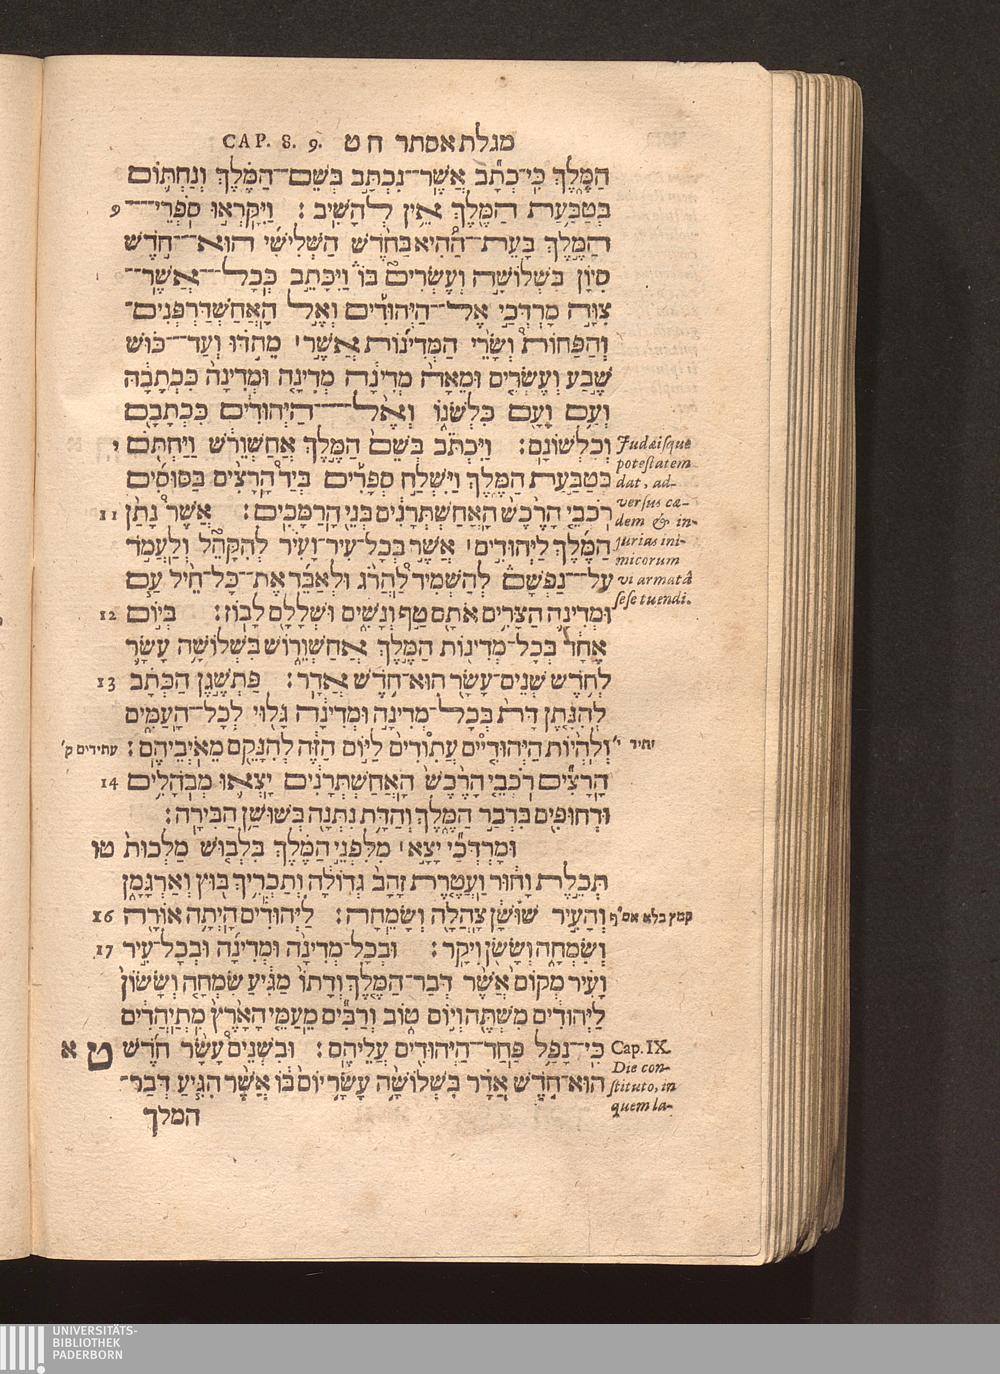 CAP. 8. 9. מגלת אסתר ח ט
הַמֶּלֶךְ כִּי־כְתָב אֲשֶׁר־נִכְתָּב בְּשֵׁם־הַמֶּלֶךְ וְנַחְתּוֹם
בְּטַבַּעַת הַמֶּלֶךְ אֵין לְהָשִׁיב׃ וַיִּקָּרְאוּ סֹפְרֵי־ 9
הַמֶּלֶךְ בָּעֵת־הַהִיא בַּחֹדֶשׁ הַשְּׁלִישִׁי הוּא־חֹדֶשׁ
סִיוָן בִּשְׁלוֹשָׁה וְעֶשְׂרִים בּוֹ וַיִּכָּתֵב כְּכָל־אֲשֶׁר־
צִוָּה מָרְדֳּכַי אֶל־הַיְּהוּדִים וְאֶל הָאֲחַשְׁדַּרְפְּנִים־
וְהַפַּחוֹת וְשָׂרֵי הַמְּדִינוֹת אֲשֶׁר׀ מֵהֹדּוּ וְעַד־כּוּשׁ
שֶׁבַע וְעֶשְׂרִים וּמֵאָה מְדִינָה מְדִינָה וּמְדִינָה כִּכְתָבָהּ
וְעַם וָעָם כִּלְשֹׁנוֹ וְאֶל־הַיְּהוּדִים כִּכְתָבָם
וְכִלְשׁוֹנָם׃ וַיִּכְתֹּב בְּשֵׁם הַמֶּלֶךְ אֲחַשְׁוֵרֹשׁ וַיַּחְתֹּם י
בְּטַבַּעַת הַמֶּלֶךְ וַיִּשְׁלַח סְפָרִים בְּיַד הָרָצִים בַּסּוּסִים
רֹכְבֵי הָרֶכֶשׁ הָאֲחַשְׁתְּרָנִים בְּנֵי הָרַמָּכִים׃ אֲשֶׁר נָתַן 11
הַמֶּלֶךְ לַיְּהוּדִים׀ אֲשֶׁר בְּכָל־עִיר־וָעִיר לְהִקָּהֵל וְלַעֲמֹד
עַל־נַפְשָׁם לְהַשְׁמִיד לַהֲרֹג וּלְאַבֵּד אֶת־כָּל־חֵיל עַם
וּמְדִינָה הַצָּרִים אֹתָם טַף וְנָשִׁים וּשְׁלָלָם לָבוֹז׃ בְּיוֹם 12
אֶחָד בְּכָל־מְדִינוֹת הַמֶּלֶךְ אֲחַשְׁוֵרוֹשׁ בִּשְׁלוֹשָׁה עָשָׂר
לְחֹדֶשׁ שְׁנֵים־עָשָׂר הוּא־חֹדֶשׁ אֲדָר׃ פַּתְשֶׁגֶן הַכְּתָב 13
לְהִנָּתֵן דָּת בְּכָל־מְדִינָה וּמְדִינָה גָּלוּי לְכָל־הָעַמִּים
וְלִהְיוֹת הַיְּהוּדִיִּים עֲתִוֹדִים לַיּוֹם הַזֶּה לְהִנָּקֵם מֵאֹיְבֵיהֶם׃ עתידים ק׳
הָרָצִים רֹכְבֵי הָרֶכֶשׁ הָאֲחַשְׁתְּרָנִים יָצְאוּ מְבֹהָלִים 14
וּדְחוּפִים בִּדְבַר הַמֶּלֶךְ וְהַדָּת נִתְּנָה בְּשׁוּשַׁן הַבִּירָה׃
וּמָרְדֳּכַי יָצָא׀ מִלִּפְנֵי הַמֶּלֶךְ בִּלְבוּשׁ מַלְכוּת טו
תְּכֵלֶת וָחוּר וַעֲטֶרֶת זָהָב גְּדוֹלָה וְתַכְרִיךְ בּוּץ וְאַרְגָּמָן
וְהָעִיר שׁוּשָׁן צָהֲלָה וְשָׂמֵחָה׃ לַיְּהוּדִים הָיְתָה אוֹרָה 16
וְשִׂמְחָה וְשָׂשֹׂן וִיקָר׃ וּבְכָל־מְדִינָה וּמְדִינָה וּבְכָל־עִיר 17
וָעִיר מְקוֹם אֲשֶׁר דְּבַר־הַמֶּלֶךְ וְדָתוֹ מַגִּיעַ שִׂמְחָה וְשָׂשׂוֹן
לַיְּהוּדִים מִשְׁתֶּה וְיוֹם טוֹב וְרַבִּים מֵעַמֵּי הָאָרֶץ מִתְיַהֲדִים
כִּי־נָפַל פַּחַד־הַיְּהוּדִים עֲלֵיהֶם׃ וּבִשְׁנֵים עָשָׂר חֹדֶשׁ ט א
הוּא־חֹדֶשׁ אֲדָר בִּשְׁלוֹשָׁה עָשָׂר יוֹם בּוֹ אֲשֶׁר הִגִּיעַ דְּבַר־
המלך
Judæisque
potestatem
dat, ad-
versus cæ-
dem & in-
jurias ini-
micorum
vi armatâ
sese tuendi.
יתיר י׳
קמץ בלא אס״ף
Cap. IX.
Die con-
stituto, in
quem la-
UNIVERSITÄTS-
BIBLIOTHEK
PADERBORN